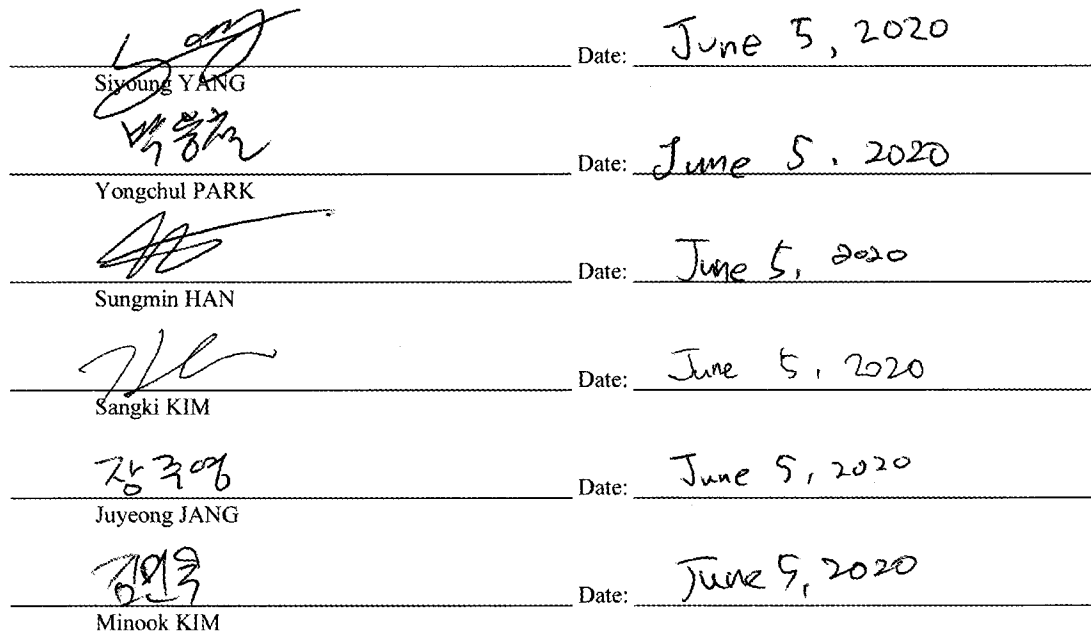 Date: June 5, 2020
Siyoung YANG
박용철 Date: June 5. 2020
Yongchul PARK
Date: June 5, 2020
Sungmin HAN
Date: June 5, 2020
Sangki KIM
장주영 Date: June 5, 2020
Juyeong JANG
김민욱 Date: June 5, 2020
Minook KIM